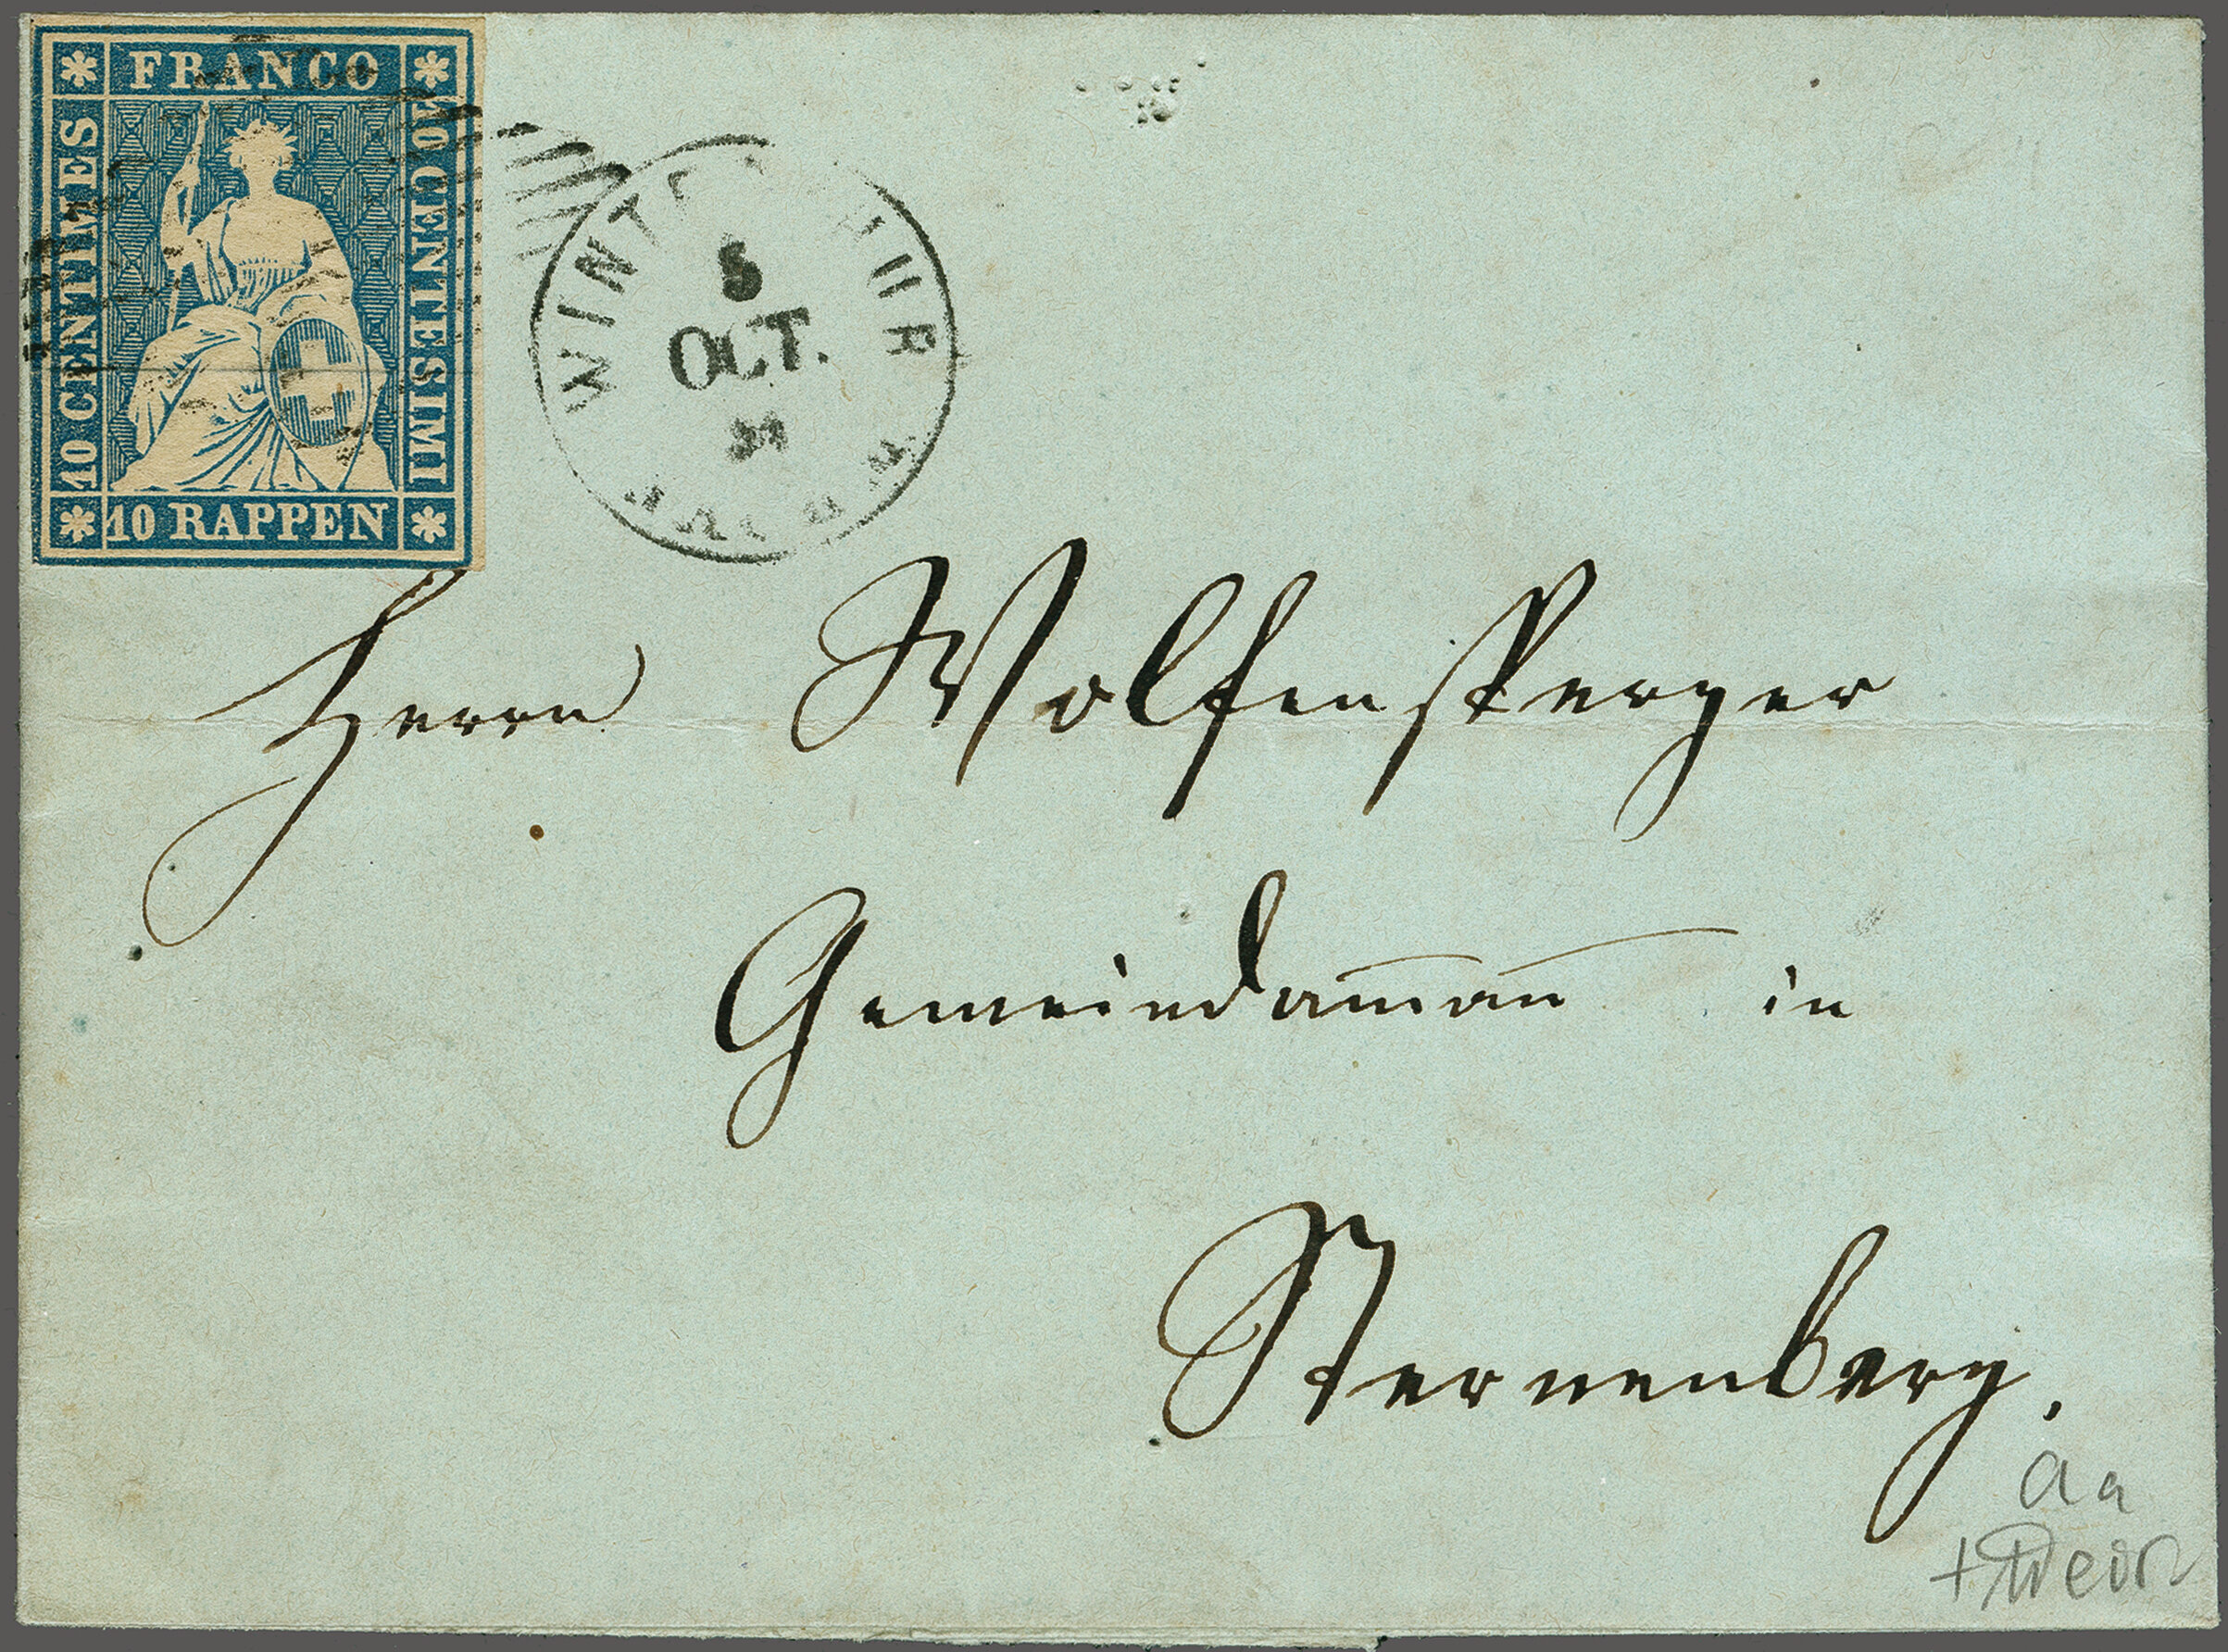 FRANCO
10 CENTIMES
10 CENTESIMI
10 RAPPEN
WINTERTHUR
5
OCT.
Herrn Wolfensperger
Gemeindam̅an̅ in
Sternenberg.